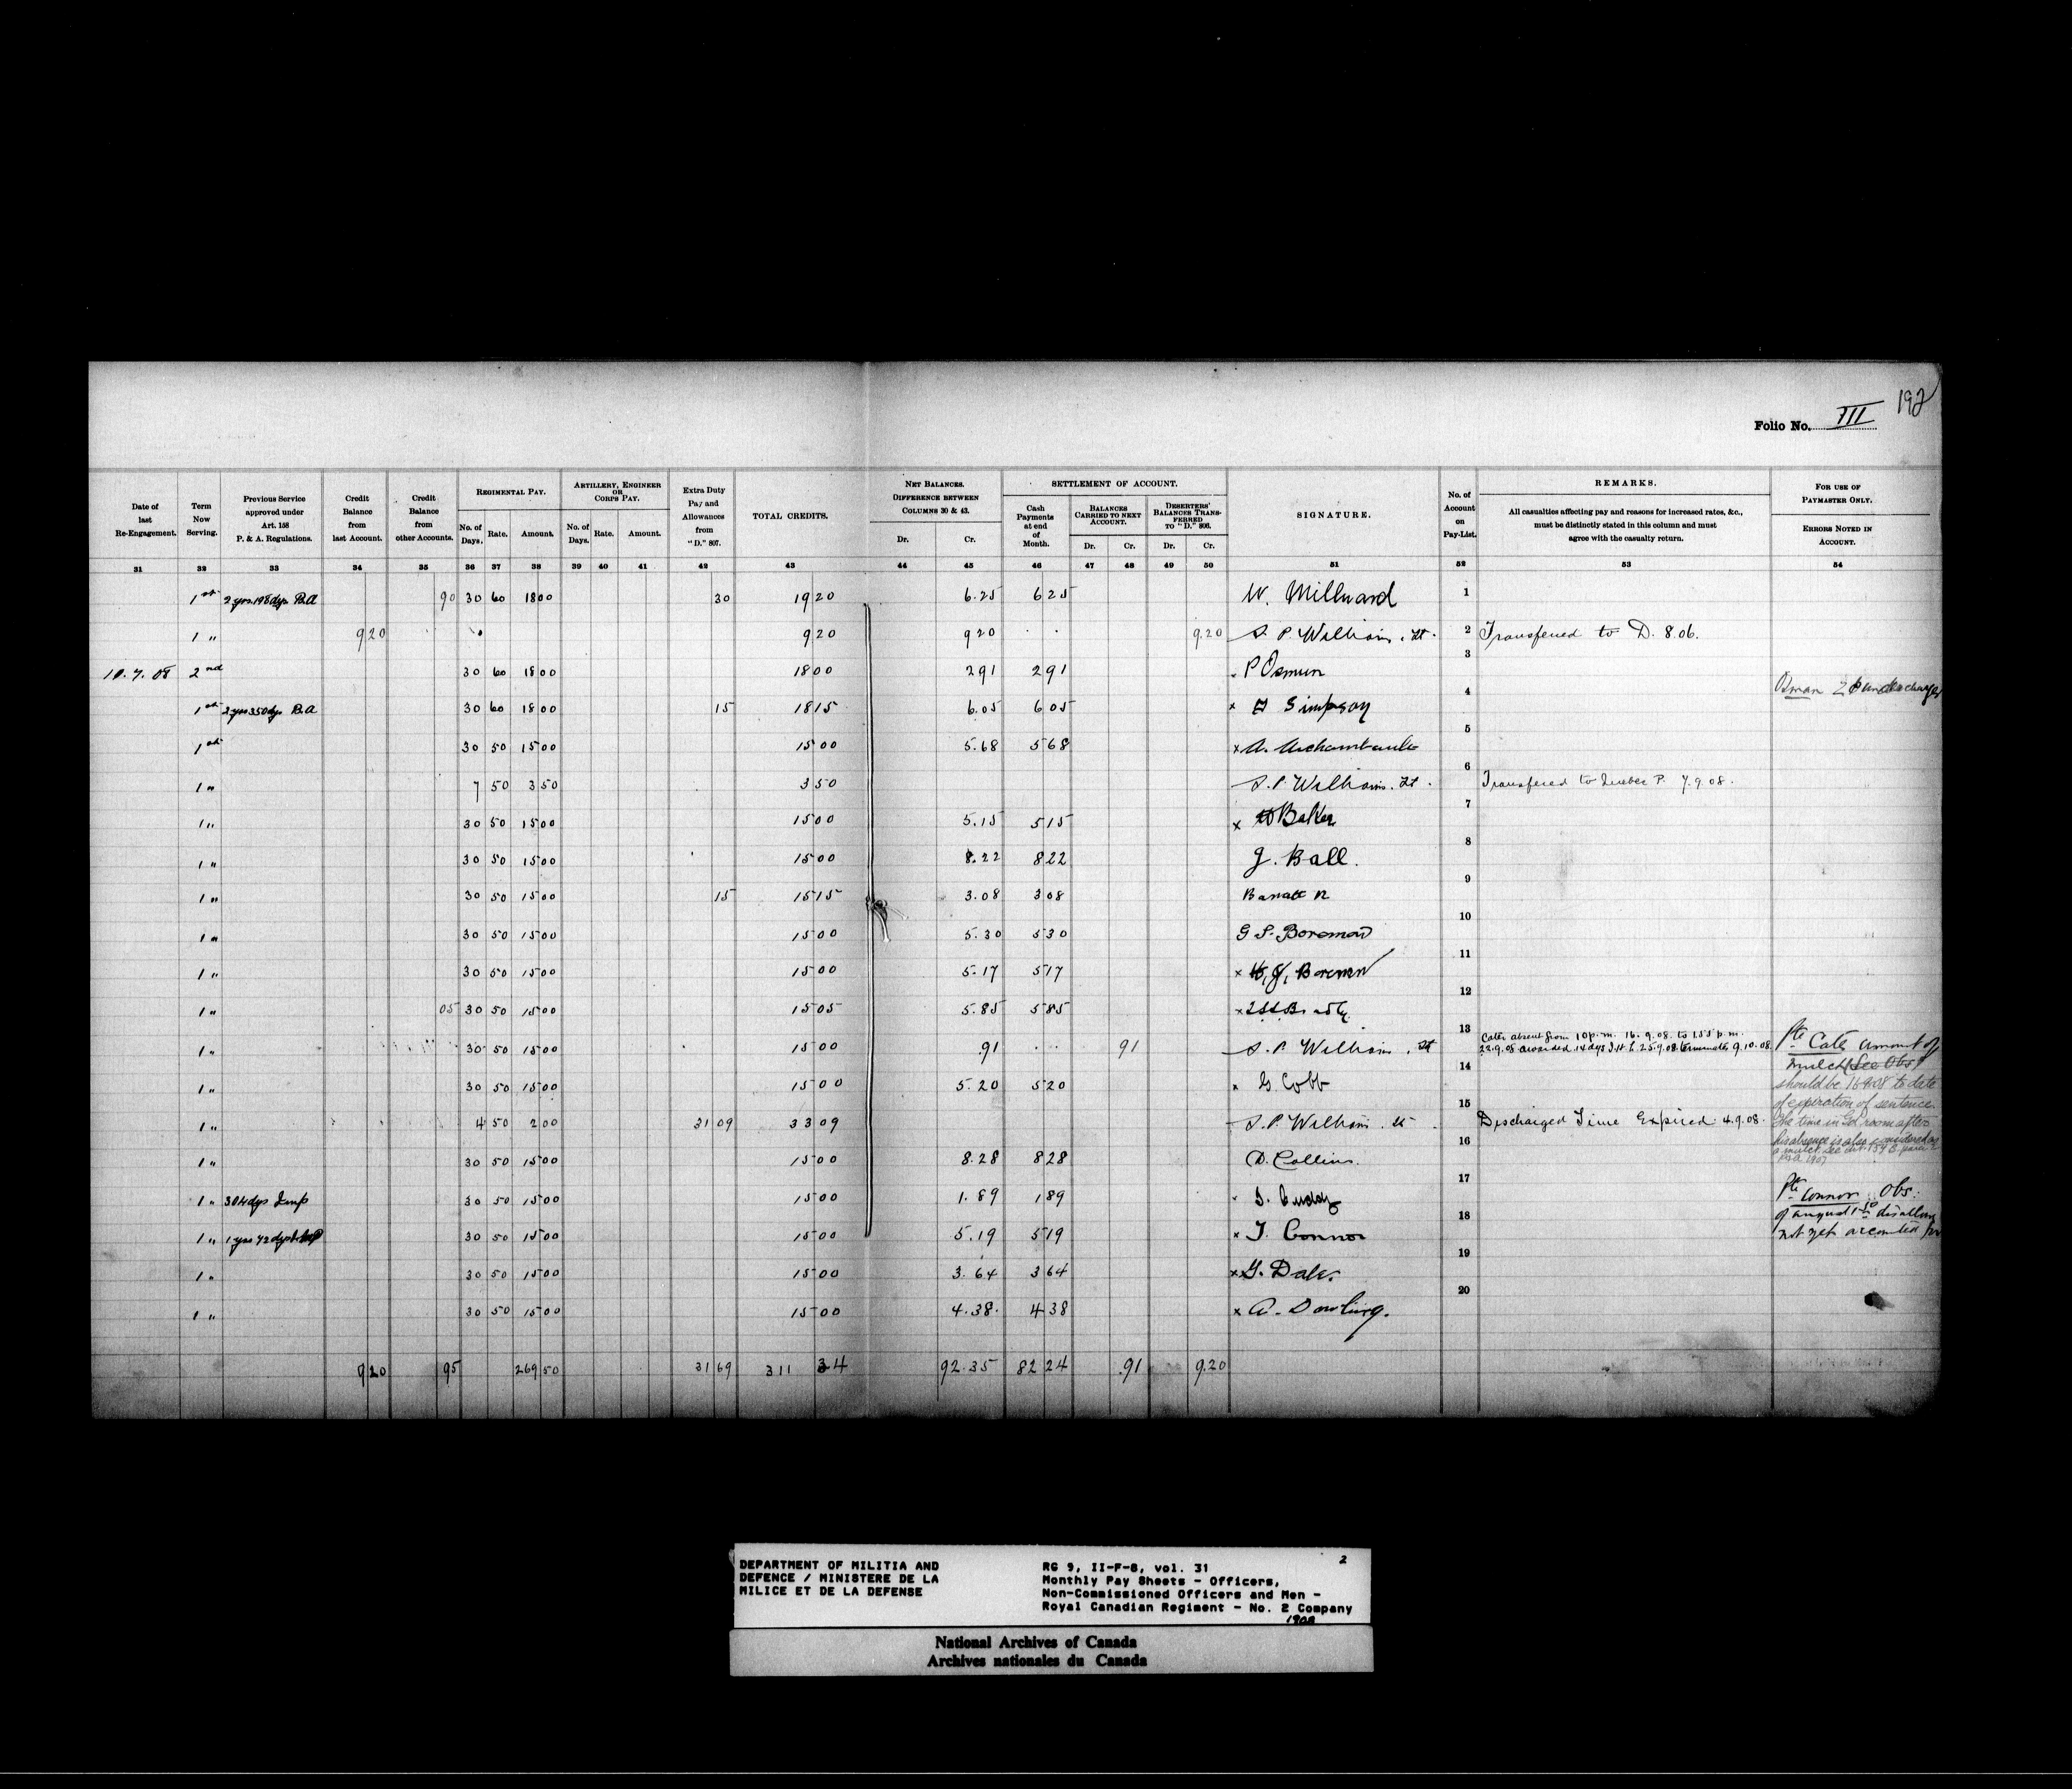 192
Folio No. III
Date of last Re-Engagement.
Term Now Serving.
Previous Service approved under Art. 158 P. & A. Regulations.
Credit Balance from last Account.
Credit Balance from other Accounts.
REGIMENTAL PAY.
No. of Days. Rate. Amount.
ARTILLERY, ENGINEER OR CORPS PAY.
No. of Days. Rate. Amount.
Extra Duty Pay and Allowances from "D." 807.
TOTAL CREDITS.
NET BALANCES. DIFFERENCE BETWEEN COLUMNS 30 & 43.
Dr. Cr.
SETTLEMENT OF ACCOUNT.
Cash Payments at end of Month.
BALANCES CARRIED TO NEXT ACCOUNT.
Dr. Cr.
DESERTERS' BALANCES TRANSFERRED TO "D." 806.
Dr. Cr.
SIGNATURE.
No. of Account on Pay-List.
REMARKS.
All casualties affecting pay and reasons for increased rates, &c., must be distinctly stated in this column and must agree with the casualty return.
FOR USE OF PAYMASTER ONLY.
ERRORS NOTED IN ACCOUNT.
31 32 33 34 35 36 37 38 39 40 41 42 43 44 45 46 47 48 49 50 51 52 53 54
1st 2 yrs. 198 dys. P.A 90 30 60 1800 30 1920 6.25 625 W. Millward 1
1 " 920 920 920 9.20 S. P. Williams. Lt. 2 Transferred to D. 806.
10.7.08 2nd 30 60 1800 1800 291 291 P Osmun 3
Osman 2¢ undercharged
1st 2 yrs 350 dys P.A 30 60 1800 15 1815 6.05 605 x Simpson 4
1st 30 50 1500 1500 5.68 568 x A. Archambault 5
1 " 7 50 350 350 S. P. Williams. Lt. 6 Transfered to Quebec P. 7.9.08.
1 " 30 50 1500 1500 5.15 515 x Baker 7
1 " 30 50 1500 1500 8.22 822 J. Ball. 8
1 " 30 50 1500 15 1515 3.08 308 Barratt R 9
1 " 30 50 1500 1500 5.30 530 G S. Boreman 10
1 " 30 50 1500 1500 5.17 517 x J, Boreman 11
1 " 05 30 50 1500 1505 5.85 585 x 12
1 " 30 50 1500 1500 .91 91 S. P. Williams. Lt 13 Cates absent from 10 p.m. 16.9.08. to 1.55 p.m. 22.9.08 awarded 14 dys I.H.L. 25.9.08 terminates 9.10.08.
Pte Cates amount of
mulct (See Obs)
should be 16.9.08 to date
of expiration of sentence.
The time in Gd room after
his absence is also considered as
a mulct. See Art. 154 B. para 2
P&A 1907
1 " 30 50 1500 1500 5.20 520 x G. Cobb 14
1 " 4 50 200 3109 3309 S. P. Williams. Lt 15 Discharged Time Expired 4.9.08.
1 " 30 50 1500 1500 8.28 828 D. Collins. 16
1 " 304 dys Imp 30 50 1500 1500 1.89 189 Cuddy 17
Pte Connor Obs.
of August 1.50 disallow
not yet accounted for
1 " 1 yrs 72 dys 30 50 1500 1500 5.19 519 x T. Connor 18
1 " 30 50 1500 1500 3.64 364 x G. Dale. 19
1 " 30 50 1500 1500 4.38. 438 x A. Dowling. 20
920 95 26950 3169 311 34 92.35 8224 .91 9.20
DEPARTMENT OF MILITIA AND
DEFENCE / MINISTERE DE LA
MILICE ET DE LA DEFENSE
RG 9, II-F-8, vol. 31 2
Monthly Pay Sheets - Officers,
Non-Commissioned Officers and Men -
Royal Canadian Regiment - No. 2 Company
1908
National Archives of Canada
Archives nationales du Canada